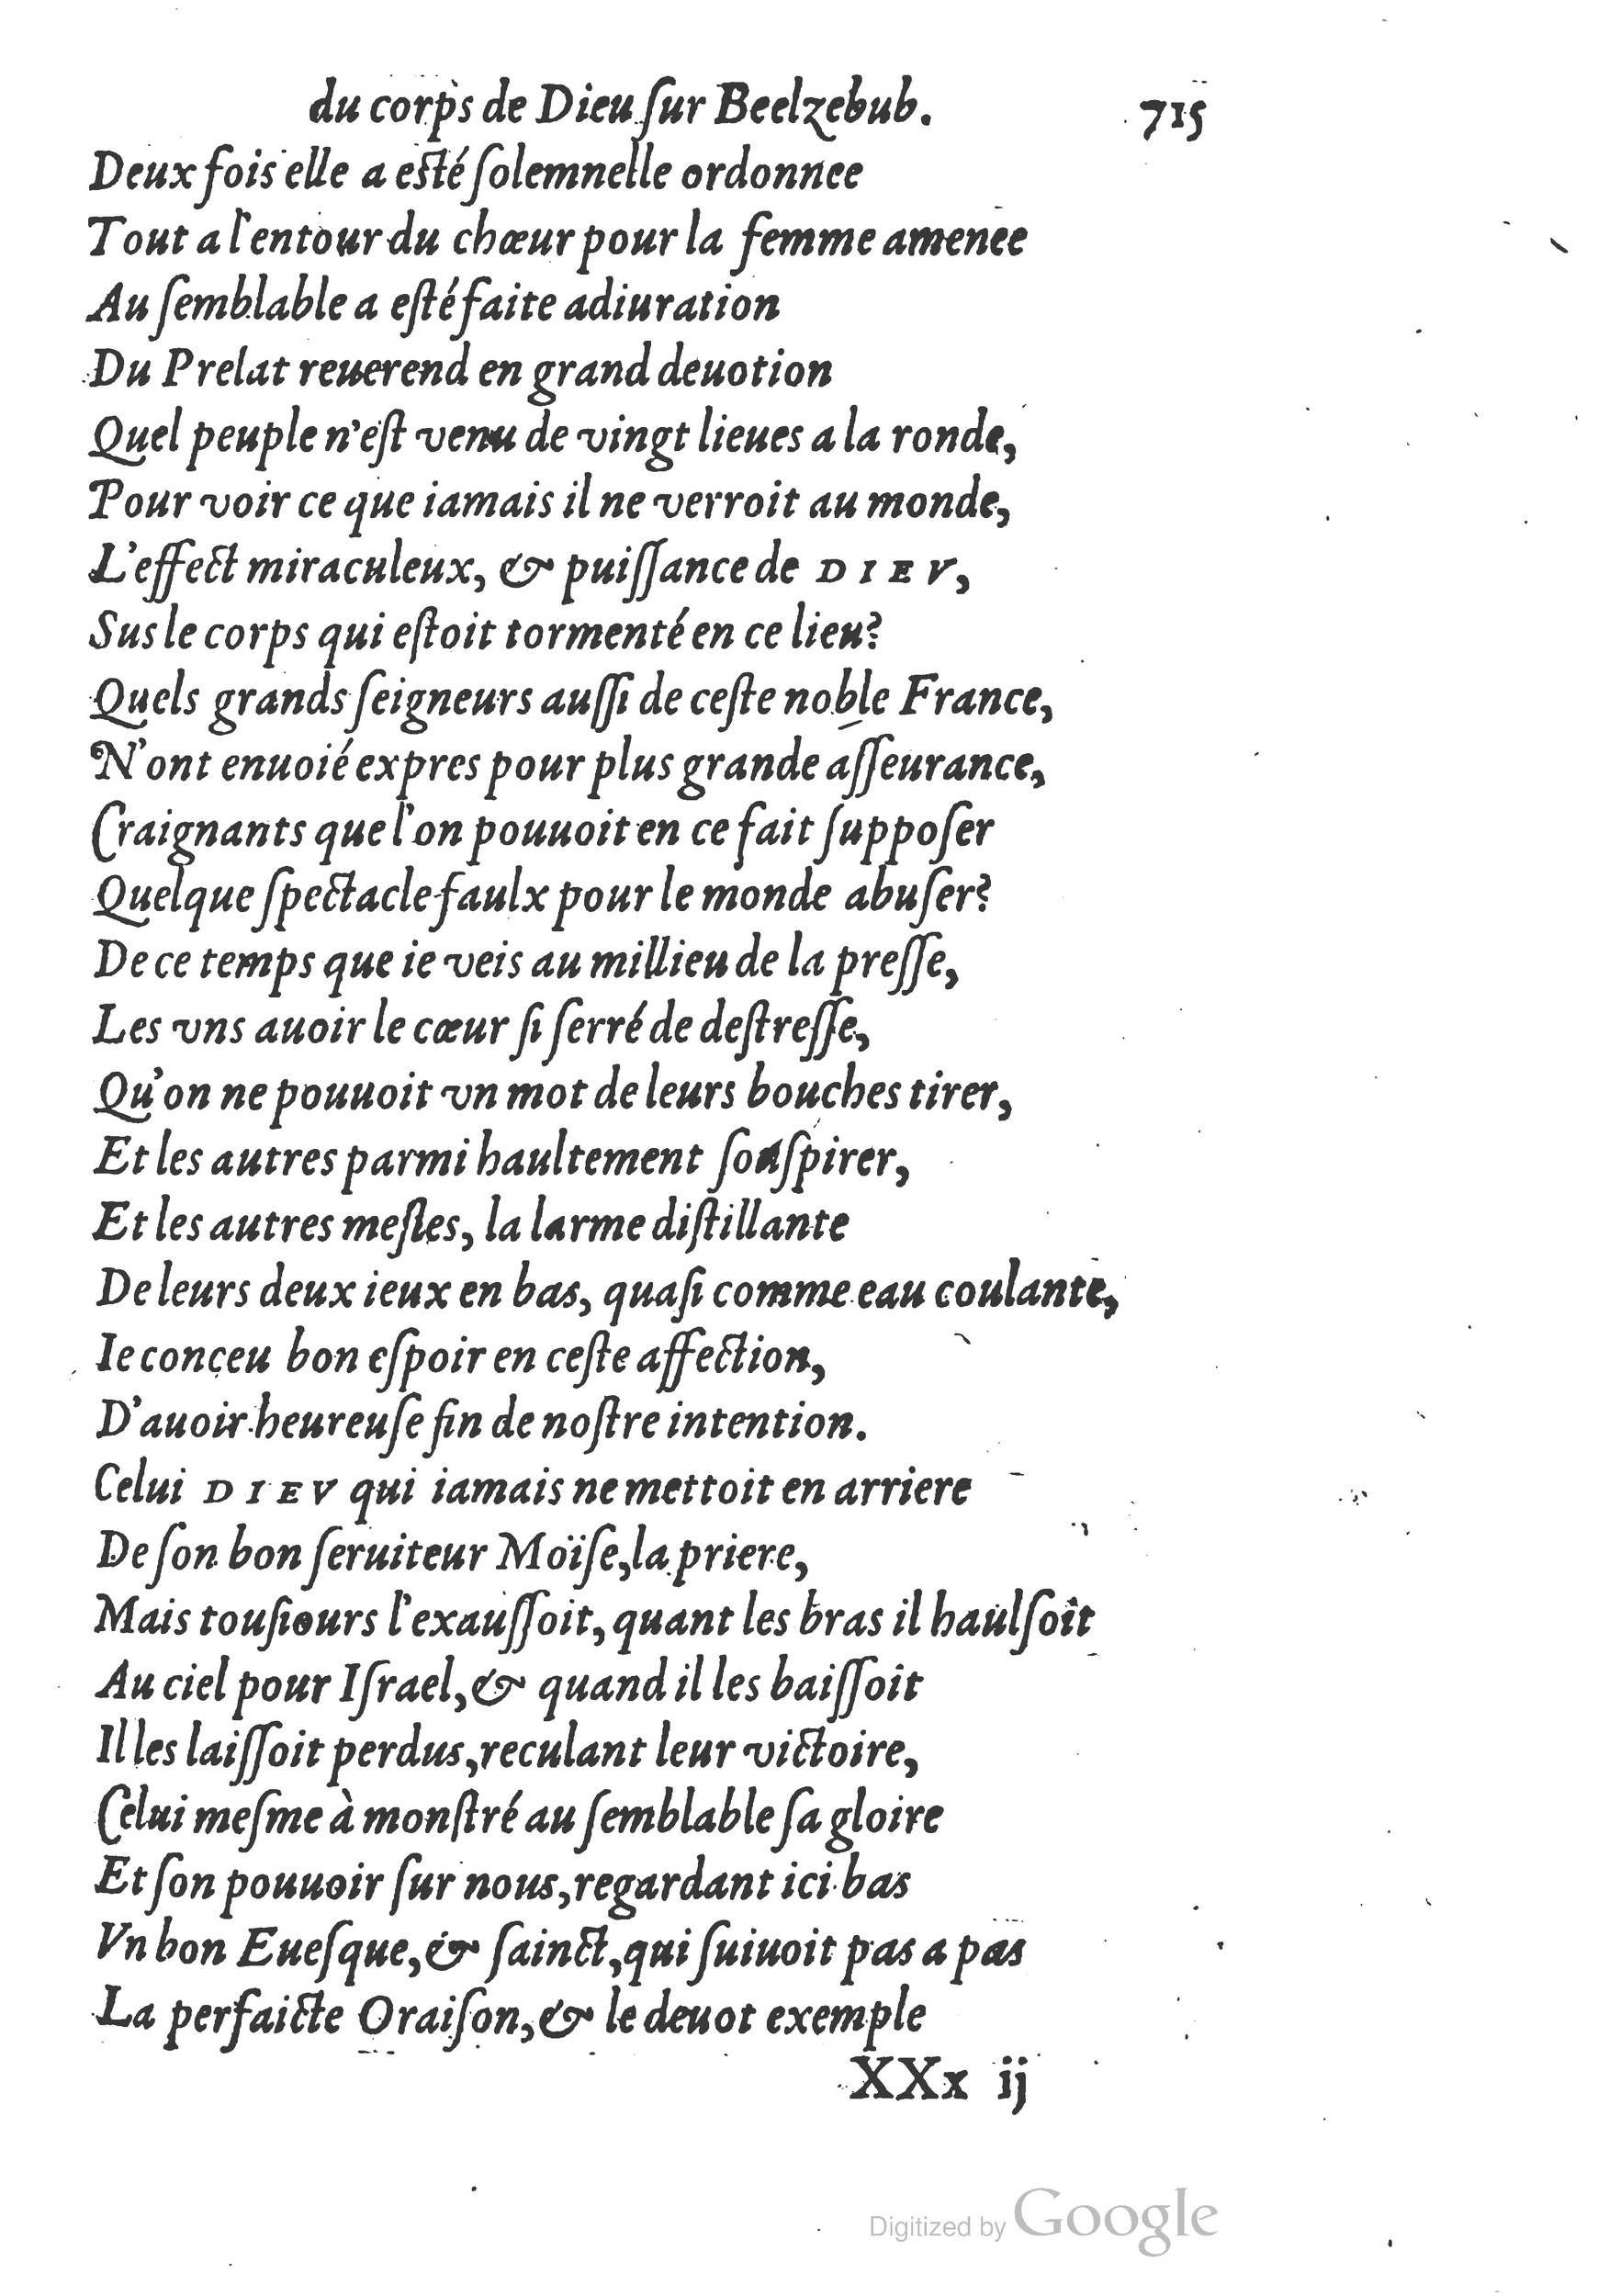 du corps de Dieu ſur Beelzebub. 715
Deux fois elle a eſté ſolemnelle ordonnee
Tout a l'entour du chœur pour la femme amenee
Au ſemblable a eſté faite adiuration
Du Prelat reuerend en grand deuotion
Quel peuple n'eſt venu de vingt lieues a la ronde,
Pour voir ce que iamais il ne verroit au monde,
L'effect miraculeux, & puiſſance de DIEV,
Sus le corps qui eſtoit tormenté en ce lieu?
Quels grands ſeigneurs auſſi de ceſte noble France,
N'ont enuoié expres pour plus grande aſſeurance,
Craignants que l'on pouuoit en ce fait ſuppoſer
Quelque ſpectacle faulx pour le monde abuſer?
De ce temps que ie veis au millieu de la preſſe,
Les vns auoir le cœur ſi ſerré de deſtreſſe,
Qu'on ne pouuoit vn mot de leurs bouches tirer,
Et les autres parmi haultement ſouſpirer,
Et les autres meſles, la larme diſtillante
De leurs deux ieux en bas, quaſi comme eau coulante,
Ie conçeu bon eſpoir en ceſte affection,
D'auoir heureuſe fin de noſtre intention.
Celui DIEV qui iamais ne mettoit en arriere
De ſon bon ſeruiteur Moïſe, la priere,
Mais touſiours l'exauſſoit, quant les bras il haulſoit
Au ciel pour Iſrael, & quand il les baiſſoit
Il les laiſſoit perdus, reculant leur victoire,
Celui meſme à monſtré au ſemblable ſa gloire
Et ſon pouuoir ſur nous, regardant ici bas
Vn bon Eueſque, & ſainct, qui ſuiuoit pas a pas
La perfaicte Oraiſon, & le deuot exemple
XXx ij
Digitized by Google